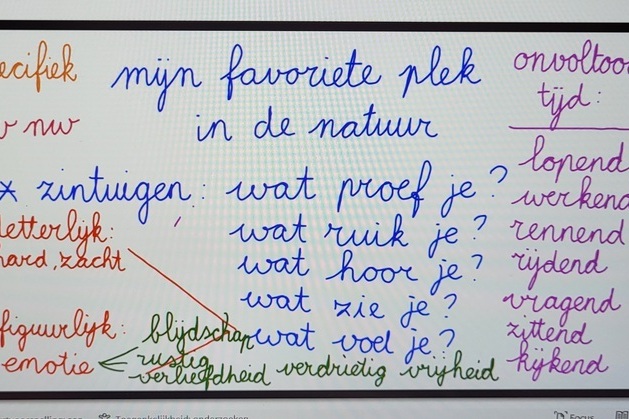 ecifiek
nw
mijn favoriete plek
in de natuur
* zintuigen: wat proef je?
wat ruik je?
wat hoor je?
wat zie je?
wat voel je?
letterlijk:
hard, zacht
figuurlijk:
emotie
blijdschap
rustig
verliefdheid verdrietig vrijheid
onvoltoo
tijd:
lopend
werkend
rennend
rijdend
vragend
zittend
kijkend
Focus